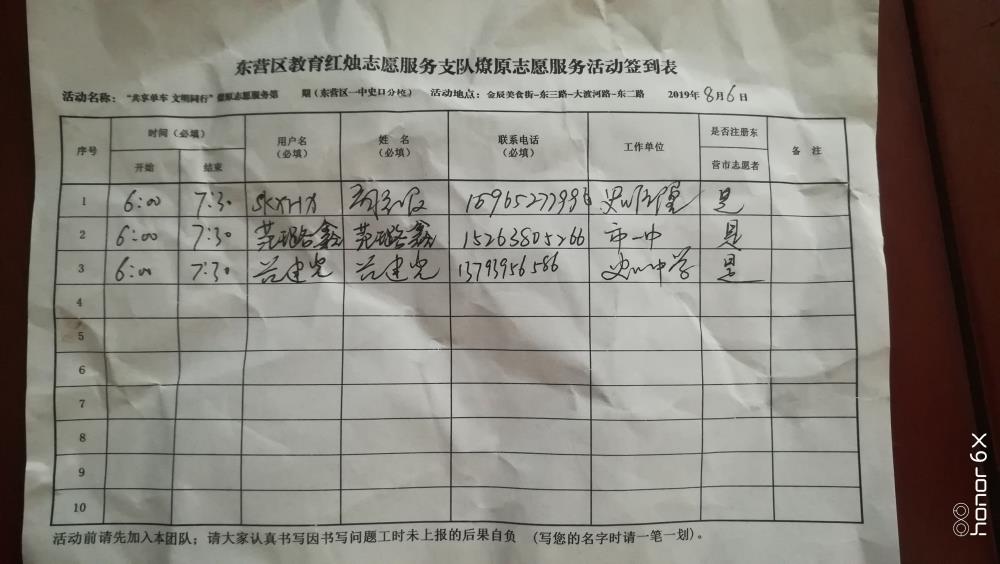 东营区教育红烛志愿服务支队燎原志愿服务活动签到表
活动名称：“共享单车 文明同行”燎原志愿服务第 期（东营区一中史口分校） 活动地点：金辰美食街-东三路-大渡河路-东二路 2019年8月6日
序号 时间（必填） 开始 结束 用户名（必填） 姓名（必填） 联系电话（必填） 工作单位 是否注册东营市志愿者 备注
1 6:00 7:30 是
2 6:00 7:30 15263805266 市一中 是
3 6:00 7:30 13793956586 史口中学 是
4
5
6
7
8
9
10
活动前请先加入本团队；请大家认真书写因书写问题工时未上报的后果自负 （写您的名字时请一笔一划）。
honor 6X